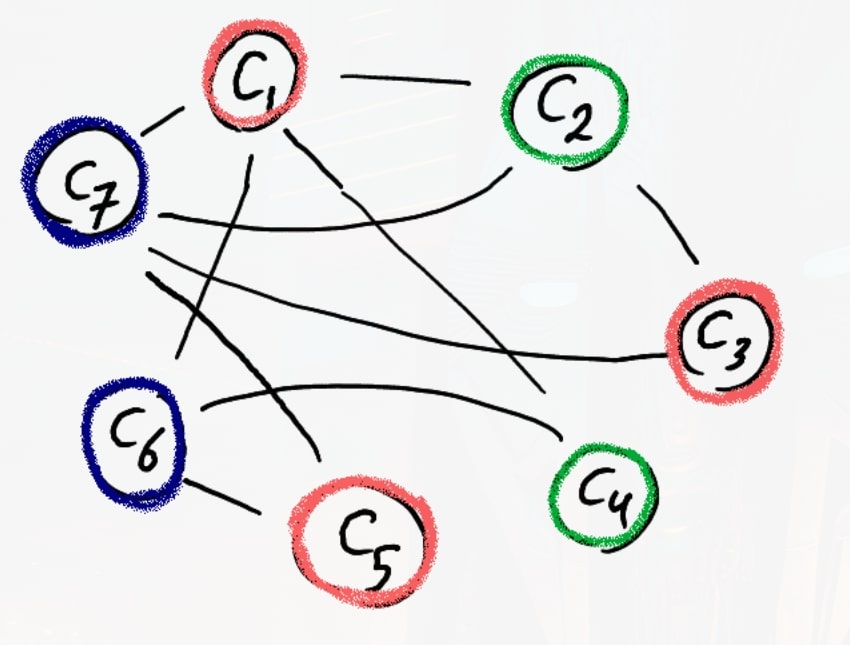 C1
C2
C7
C3
C6
C4
C5